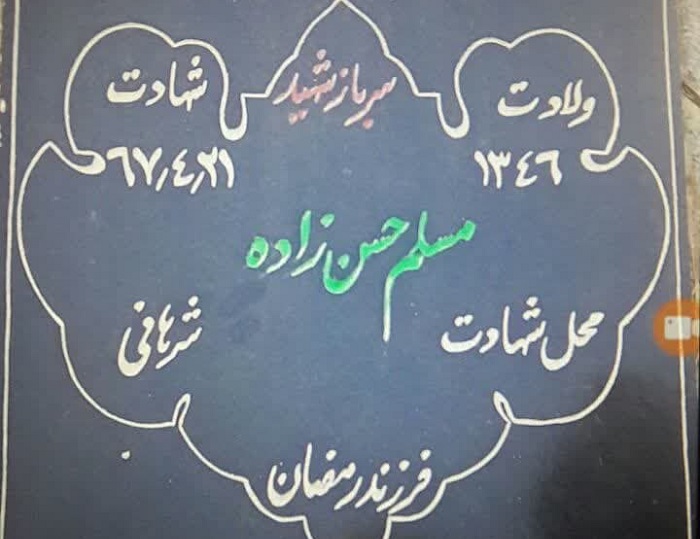 سرباز شهید
ولادت
۱۳٤٦
شهادت
٦٧٫٤٫۲۱
مسلم حسن زاده
محل شهادت
شرهانی
فرزند رمضان